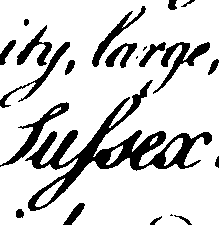 ity, large,
Suſsex.